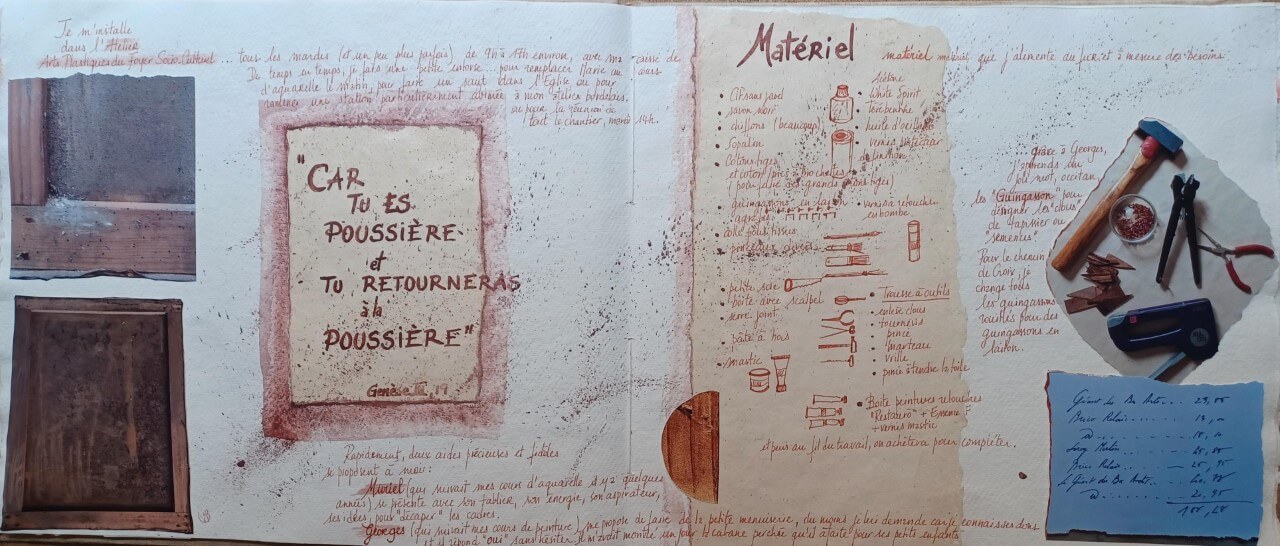 Je m'installe
dans l'Atelier
Arts Plastiques du Foyer Socio-Culturel ... tous les mardis (et un peu plus parfois) de 9h à 17h environ, avec ma caisse de
De temps en temps, je fais une petite entorse... pour remplacer Marie au cours
d'aquarelle le matin, pour faire un saut dans l'Église ou pour
une station particulièrement abîmée à mon atelier bordelais,
ou pour la réunion de
tout le chantier, mardi 14h.
"CAR
TU ES
POUSSIÈRE
et
TU RETOURNERAS
à la
POUSSIÈRE"
Genèse III, 19
Rapidement, deux aides précieuses et fidèles
se proposent à moi :
Muriel (qui suivait mes cours d'aquarelle il y a quelques
années) se présente avec son tablier, son énergie, son aspirateur,
ses idées pour "décaper" les cadres.
Georges (qui suivait mes cours de peinture), me propose de faire de la petite menuiserie, du moins je lui demande car je connais ses dons
et il répond "oui" sans hésiter. Il m'avait montré un jour la cabane perchée qu'il a faite pour ses petits enfants
Matériel
matériel que j'alimente au fur et à mesure des besoins
savon noir
chiffons (beaucoup)
Sopalin
Cotons tiges
et coton (pics à brochettes)
(pour faire des grands cotons tiges)
guingassons en laiton
agrafes
colle pour tissus
pinceaux divers
petite scie
boîte avec scalpel
serre joint
pâte à bois
mastic
White Spirit
Térébenthine
huile d'oeillette
vernis à retoucher
en bombe
Trousse à outils
enlève clous
tournevis
pince
marteau
vrille
pince à tendre la toile
Boîte peintures retouches
"Restauro" + Essence F
+ vernis mastic
et puis au fil du travail, on achètera pour compléter.
Grâce à Georges,
j'apprends un
joli mot, occitan,
les "Guingasson" pour
désigner les clous
de tapissier ou
semences!
Pour le chemin
de Croix, je
change tous
les guingassons
rouillés pour des
guingassons en
laiton.
Géant des Bx Arts
Brico Relais
Le Géant des Bx Arts